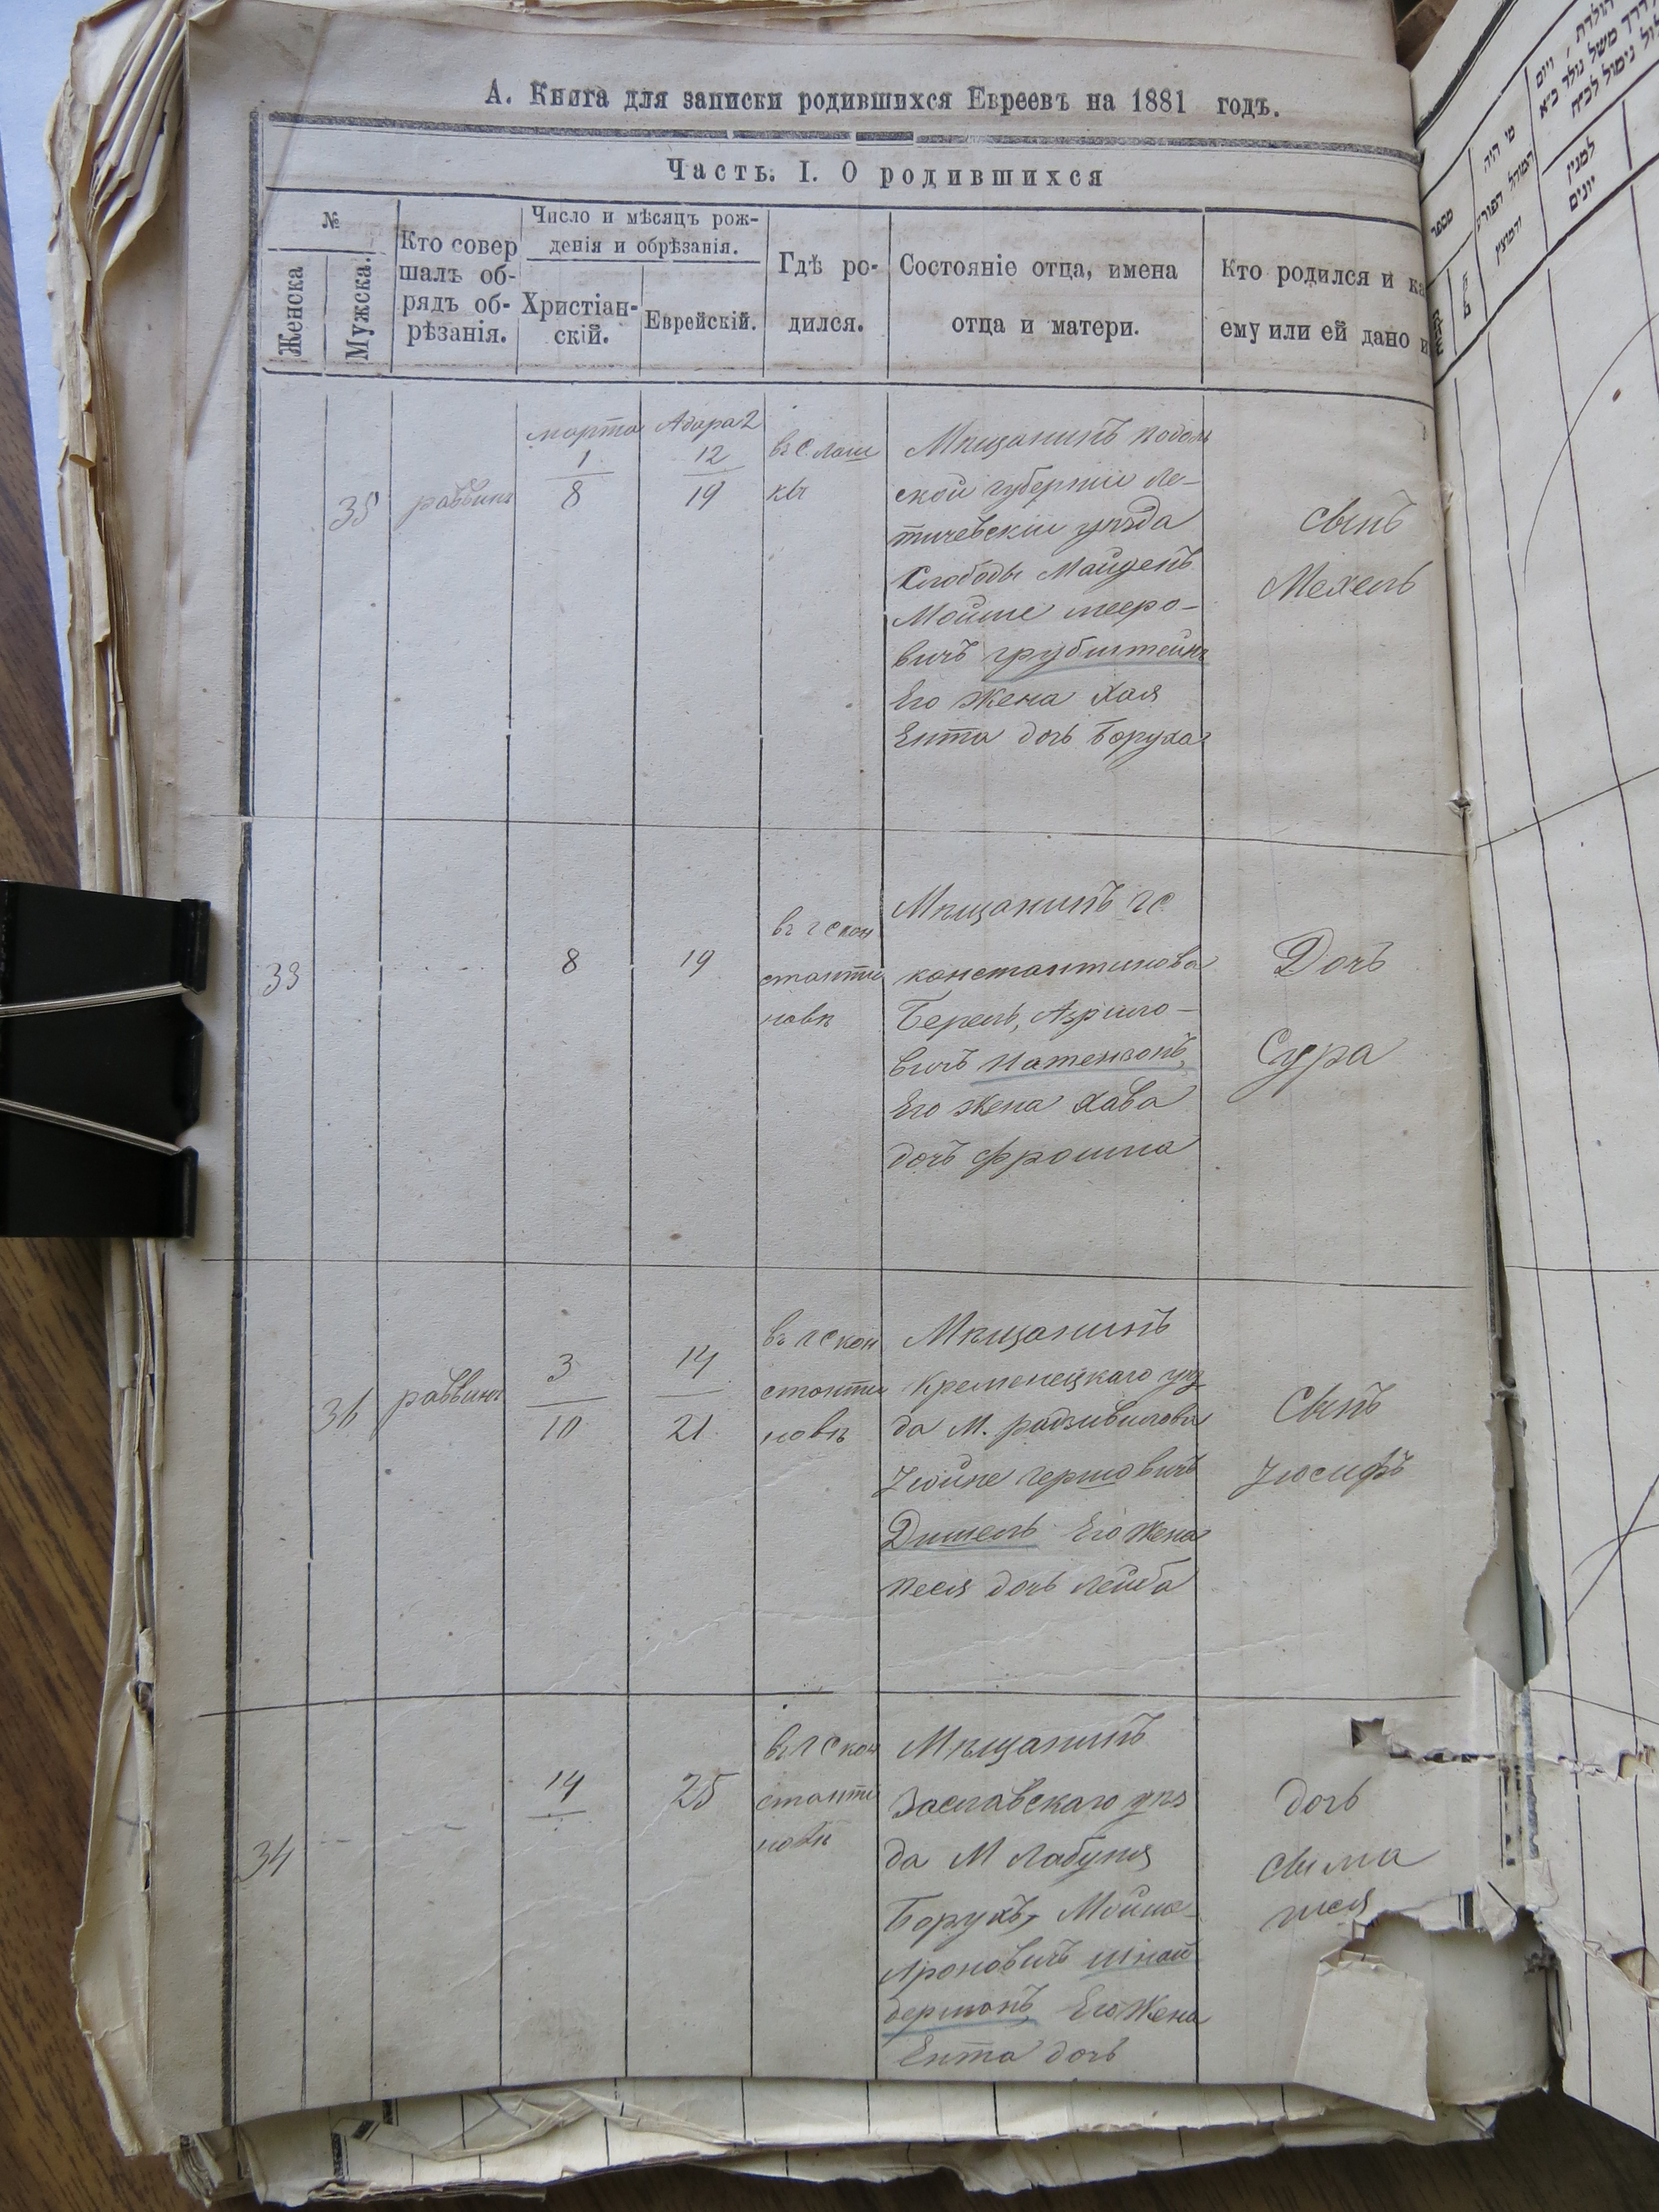 А. Книга для записки родившихся Евреевъ на 1881 годъ.
Часть. I. О родившихся
№
Женска
Мужска.
Кто совер
шалъ об-
рядъ об-
рѣзанія.
Число и мѣсяцъ рож-
денія и обрѣзанія.
Христіан-
скій.
Еврейскій.
Гдѣ ро-
дился.
Состояніе отца, имена
отца и матери.
Кто родился и ка
ему или ей дано и
35
раввинъ
марта
1
8
Адара 2
12
19
въ с. Лаш
кѣ
Мѣщанинъ Подоль
ской губерніи Ле-
тичевскій уѣзда
Слободы Майденъ
Мойше Мееро-
вичъ Грубштейнъ
Его жена Хая
Ента дочь Боруха
Сынъ
Мехель
33
8
19
въ г С кон
станти
новѣ
Мѣщанинъ г С.
константинова
Берель, Азрило-
вичъ Натензонъ,
Его жена Хава
дочь Фроима
Дочь
Сура
36
раввинъ
3
10
14
21
въ г С кон
станти
новѣ
Мѣщанинъ
Кременецкаго уѣз
да М. Радзивилова
Іойне Гершовичъ
Дишель Его жена
Песя дочь Лейба
Сынъ
Іосифъ
34
14
25
въ г С кон
станти
новѣ
Мѣщанинъ
Заславскаго уѣз
да М Лабуня
Борухъ, Мойше-
Ароновичъ Шнай
дерманъ, Его жена
Ента дочь
дочь
Сима
מספר
מי היה
המוהל הפורע
והמוצץ
למנין
יונים